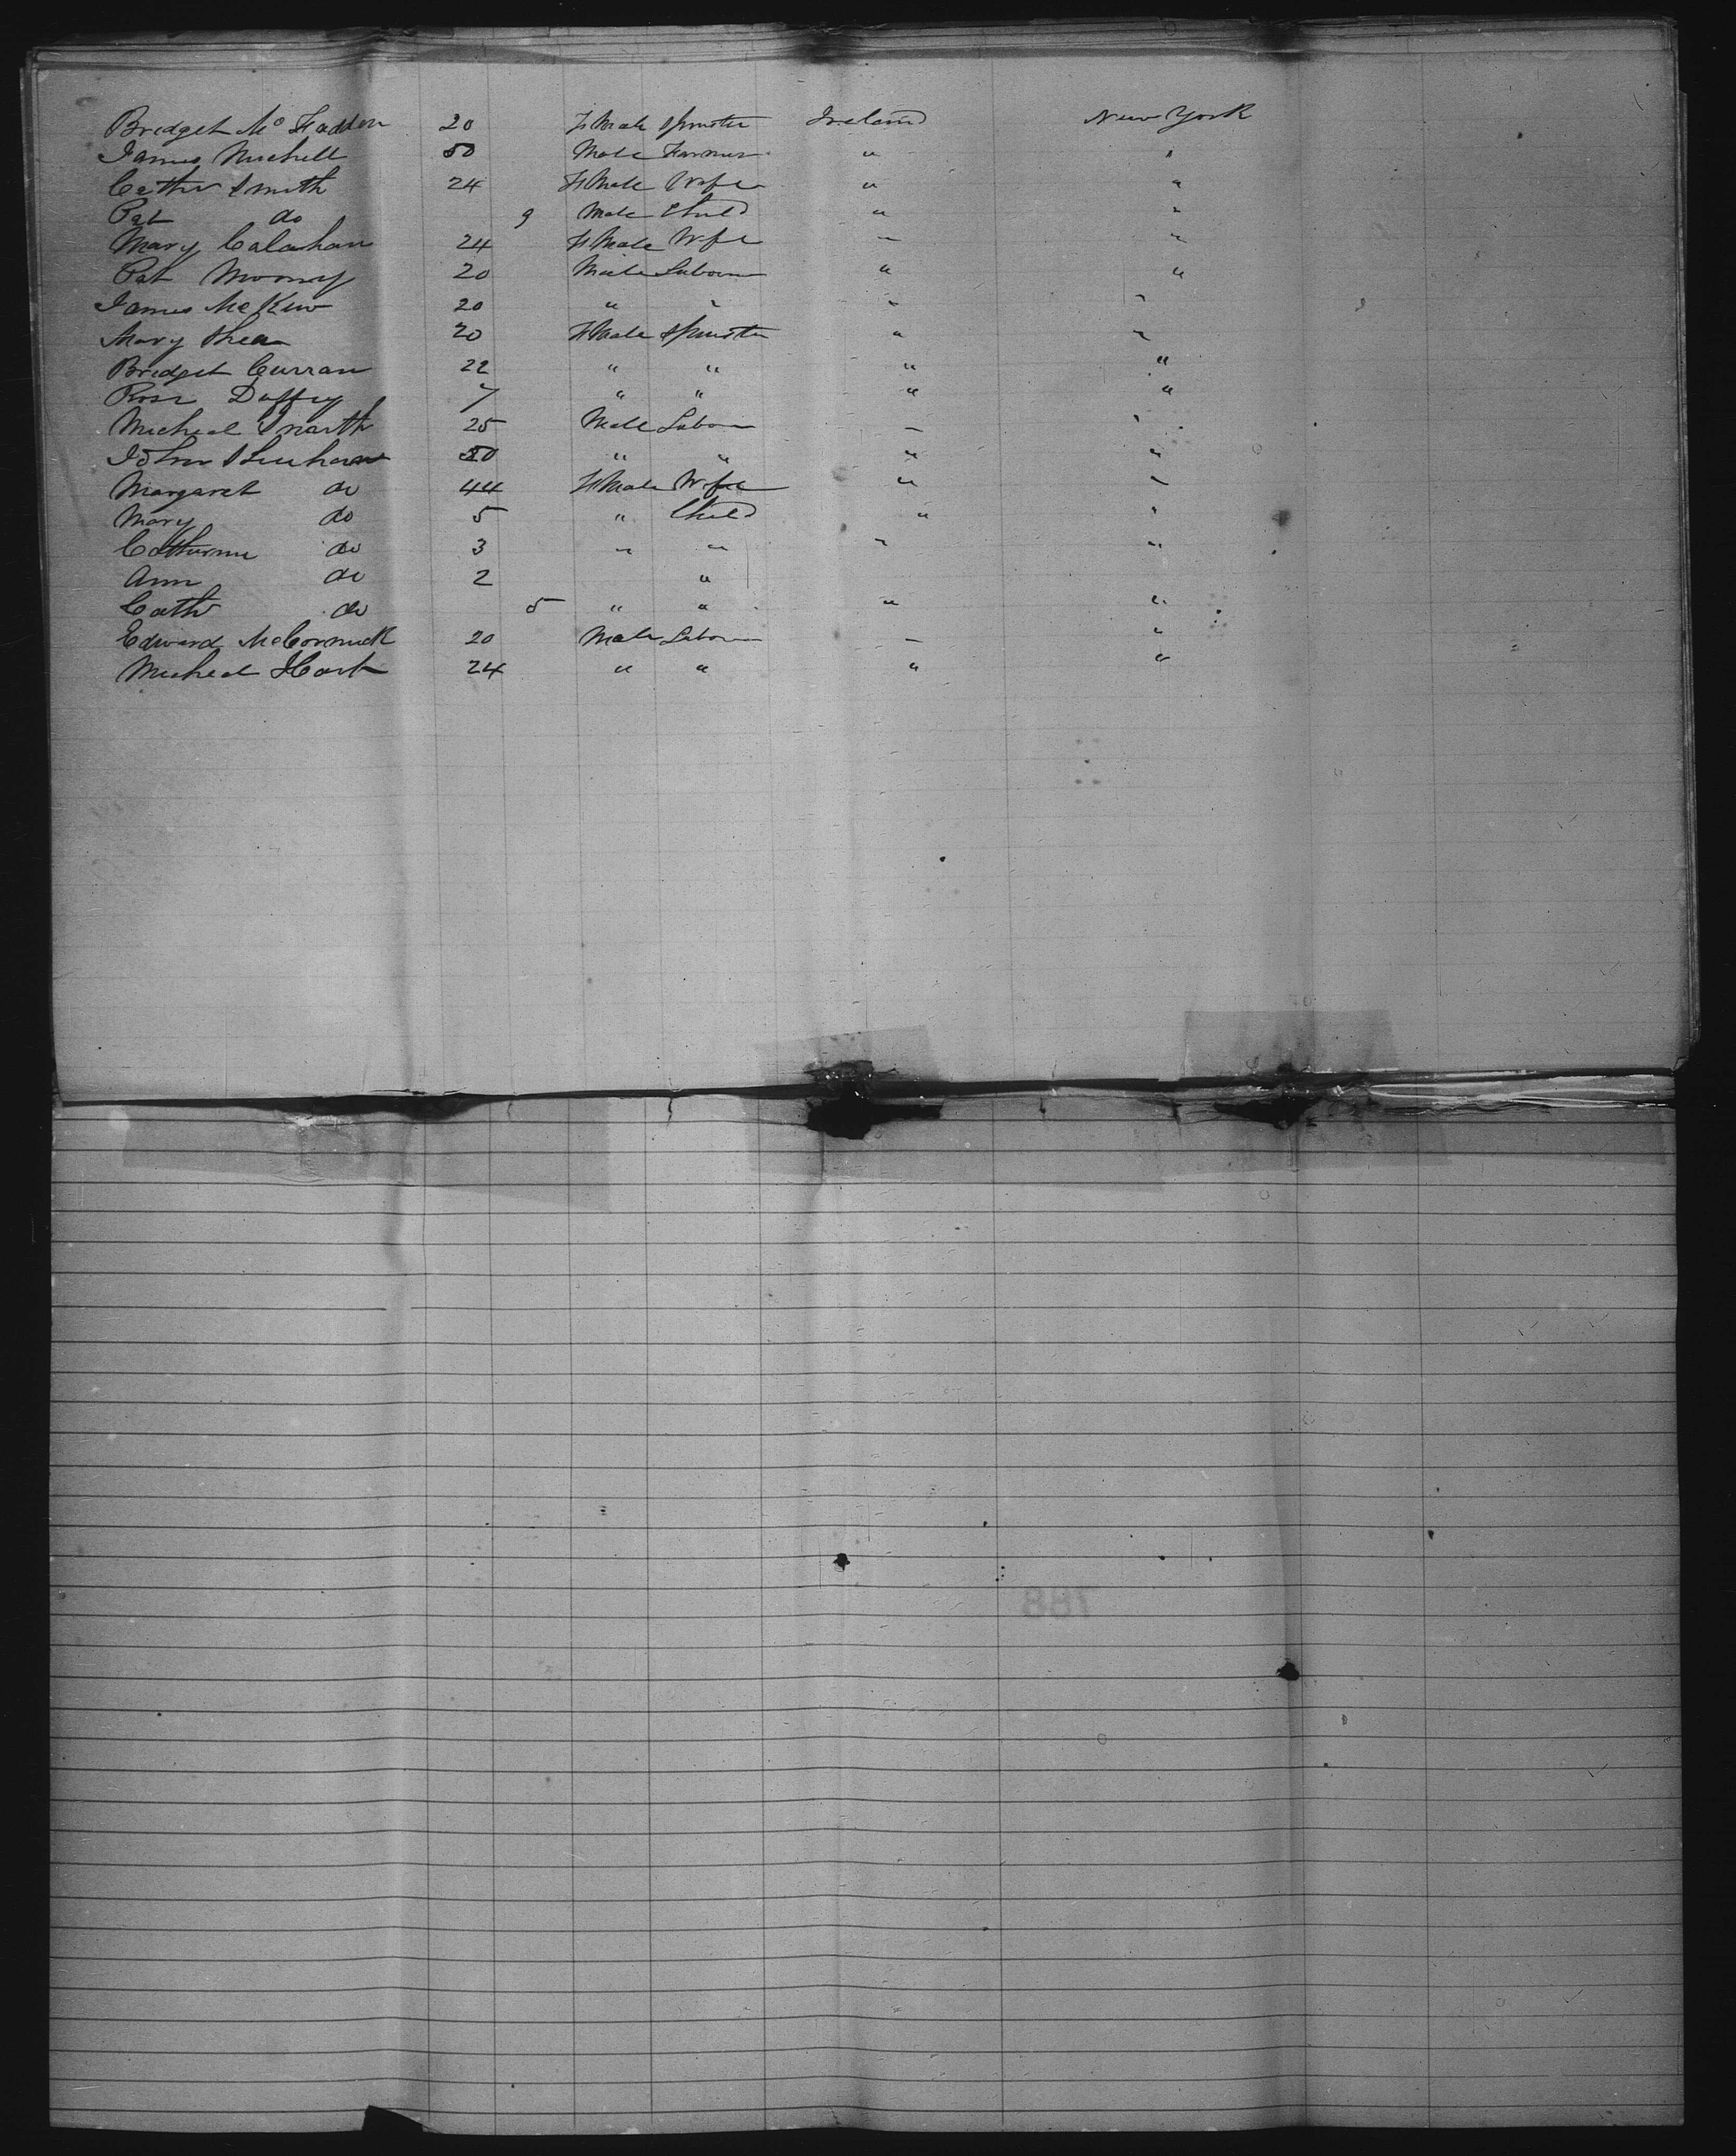 Bridget Mc Fadden 20 Female Spinster Ireland New York
James Michell 50 Male Farmer " "
Cathr Smith 24 Female Wife " "
Pat do 9 Male Child " "
Mary Calahan 24 Female Wife " "
Pat Moony 20 Male Labourer " "
James McKew 20 " " " "
Mary Shea 20 Female Spinster " "
Bridget Curran 22 " " " "
Rose Duffey 7 " " " "
Micheal 25 Male Labourer " "
John 50 " " " "
Margaret do 44 Female Wife " "
Mary do 5 " Child " "
Catherine do 3 " " " "
Ann do 2 "
Cathr do 5 " " " "
Edward McCormick 20 Male Labourer " "
Micheal Hart 24 " " " "
788